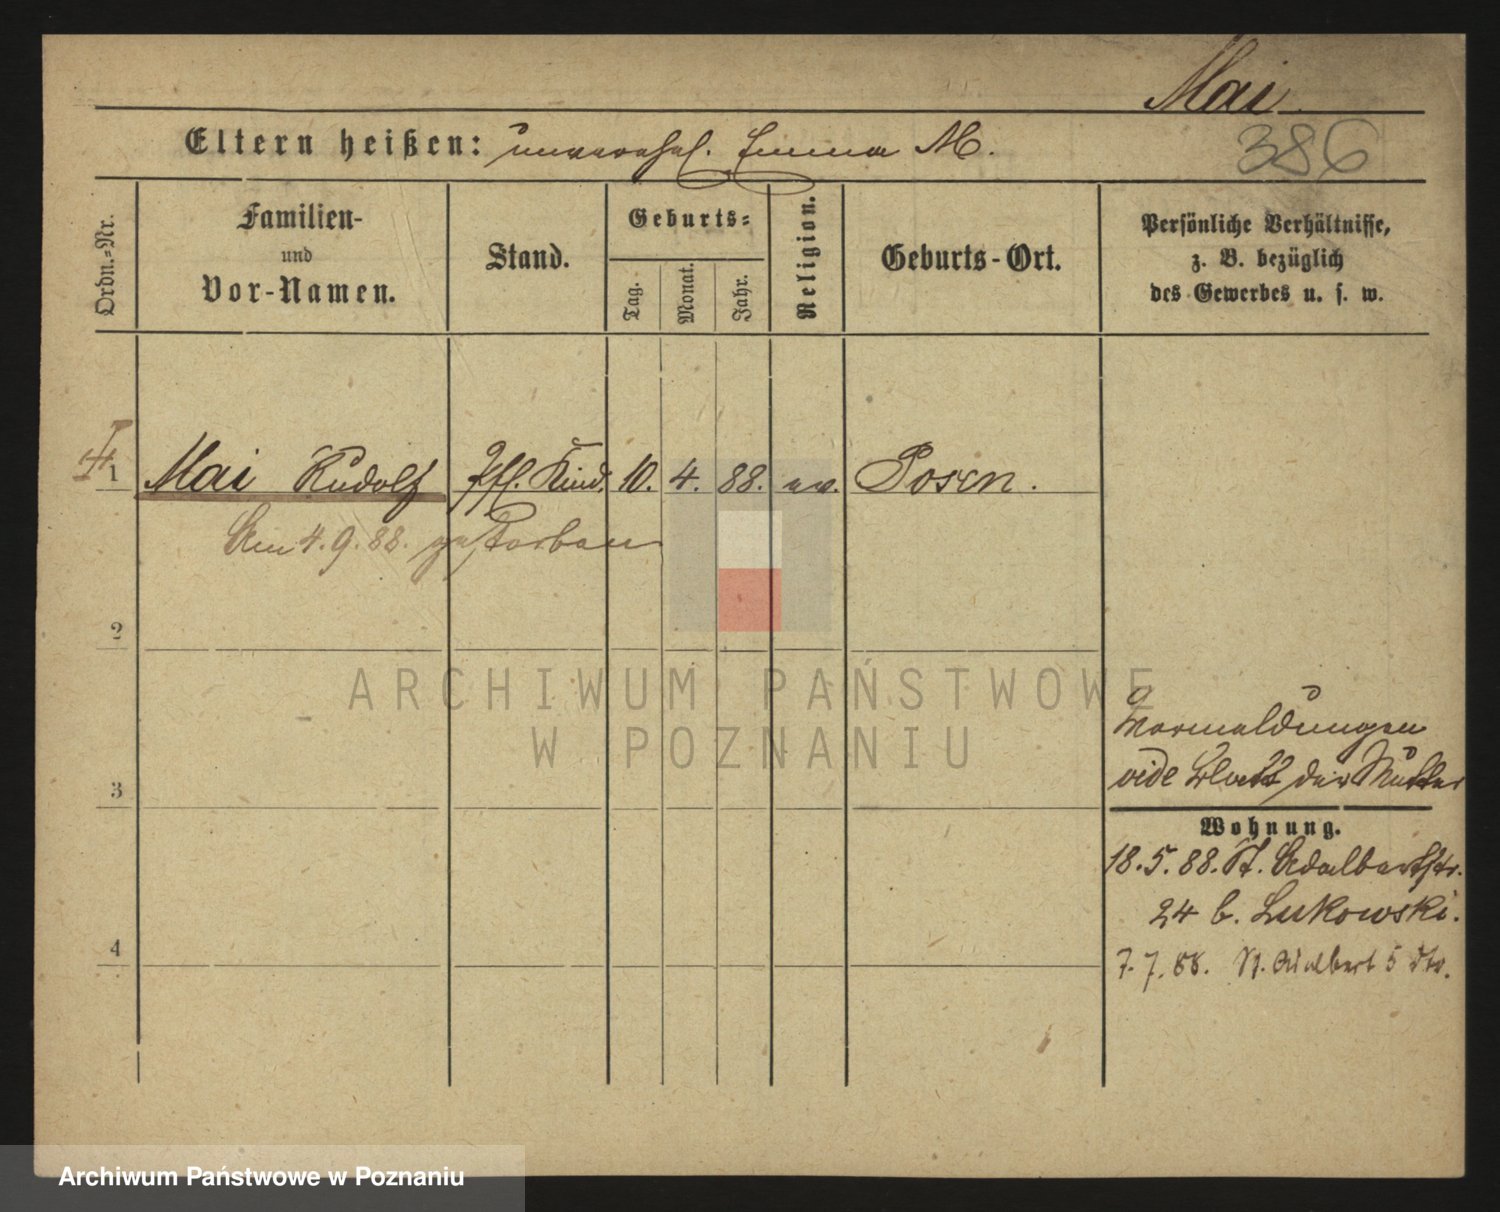 Mai.
Eltern heißen: unverehel. Emma M.
386
Ordn.-Nr.
Familien-
und
Vor-Namen.
Stand.
Geburts-
Tag.
Monat.
Jahr.
Religion.
Geburts-Ort.
Persönliche Verhältnisse,
z. B. bezüglich
des Gewerbes u. s. w.
1 Mai Rudolf Pfl. Kind. 10. 4. 88. ev. Posen.
Am 4. 9. 88. gestorben
2
3
4
Vermeldungen
vide Blatt der Mutter
Wohnung.
18. 5. 88. St. Adalbertstr.
24 b. Lukowski.
7. 7. 88. St. Adalbert 5 dto.
ARCHIWUM PAŃSTWOWE
W POZNANIU
Archiwum Państwowe w Poznaniu